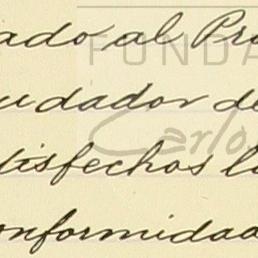 ado al Pro
FUNDA
udador de
Carlo
tisfechos lo
onformidad